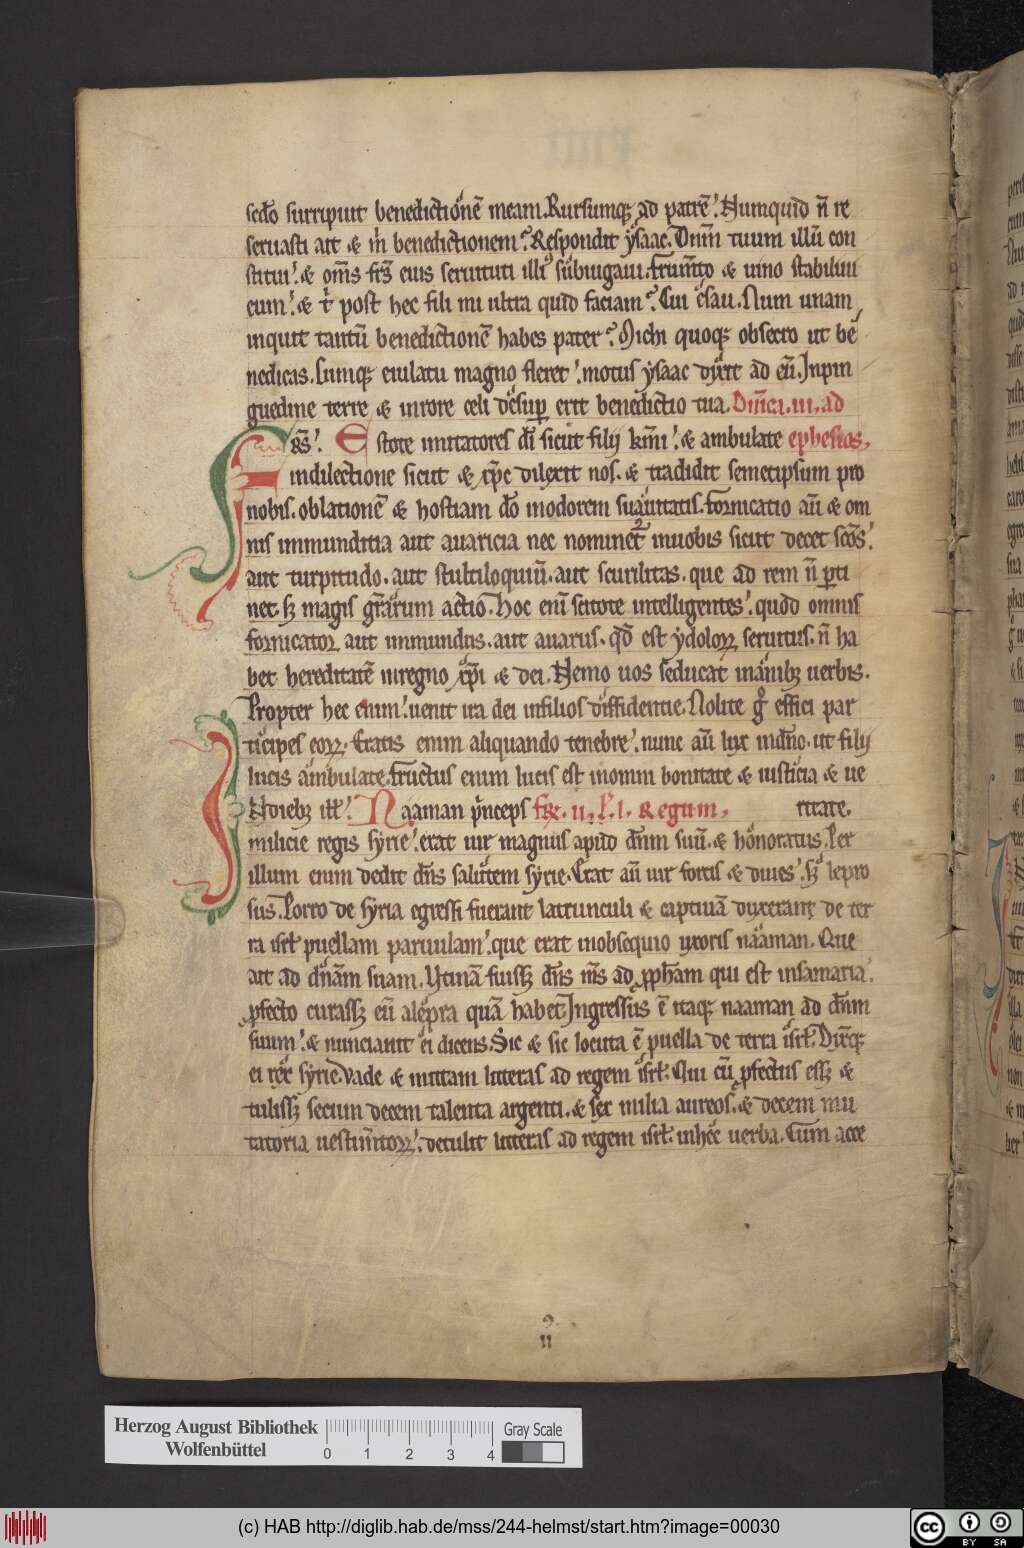 sc̄do surripuit benedictionē meam. Rursumq; ad patrē. Numquid n̄ re
seruasti ait & m̄ benedictionem? Respondit ysaac. Dnm̄ tuum illū con
stitui. & om̄s fr̄s eius seruituti illi᷒ subiugaui. frum̄to & uino stabiliui
eum. & t̄ post hec fili mi ultra quid faciam? Cui esau. Num unam
inquit tantū benedictionē habes pater? Michi quoq; obsecro ut be
nedicas. Cumq; eiulatu magno fleret. motus ysaac dixit ad eū. Inpin
guedine terre & inrore celi desup̱ erit benedictio tua. Dn̄ica. iii. ad
Frs̄. Estote imitatores dī sicut filij kmī. & ambulate ephesios.
indilectione sicut & xp̄c dilexit nos. & tradidit semetipsum pro
nobis. oblationē & hostiam dō inodorem suauitatis. fornicatio aū & om
nis immunditia aut auaricia nec nominet᷑ inuobis sicut decet scōs.
aut turpitudo. aut stultiloquiū. aut scurilitas. que ad rem n̄ p̱ti
net. s; magis gr̄arum actio. hoc enī scitote intelligentes. quod omnis
fornicator aut inmundus. aut auarus. qd̄ est ydoloꝝ seruitus. n̄ ha
bet hereditatē inregno xp̄i & dei. Nemo uos seducat inanib; uerbis.
Propter hec enim. uenit ira dei infilios diffidentie. Nolite g̊ effici par
ticipes eoꝝ. Eratis enim aliquando tenebre. nunc aū lux indn̄o. ut filij
lucis ambulate. fructus enim lucis est inomni bonitate & iusticia & ue
Indieb; ill̄. Naaman p̄nceps fr̄. ii. l. l. Regum. ritate.
milicie regis syrie. erat uir magnus apud dn̄m suū. & honoratus. Per
illum enim dedit dn̄s salutem syrie. Erat aū uir fortis & diues. s; lepro
sus. Porro de syria egressi fuerant latrunculi & captiuā duxerant de ter
ra isrł puellam paruulam. que erat inobsequio uxoris naaman. Que
ait ad dn̄am suam. Vtinā fuiss; dn̄s m̄s ad ꝓph̄am qui est insamaria.
ꝓfecto curass; eū alepra quā habet. Ingressus ē itaq; naaman ad dn̄m
suum. & nunciauit ei dicens. Sic & sic locuta ē puella de terra isrł. Dix̄q;
ei rex syrie. Vade & mittam litteras ad regem isrł. Qui cū ꝓfectus ess; &
tuliss; secum decem talenta argenti. & sex milia aureos. & decem mu
tatoria uestim̄toꝝ. detulit litteras ad regem isrł. inhec uerba. Cum acce
9.
II
Herzog August Bibliothek
Wolfenbüttel
0 1 2 3 4
Gray Scale
(c) HAB http://diglib.hab.de/mss/244-helmst/start.htm?image=00030
cc BY SA